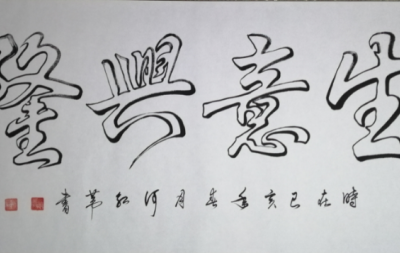 生意興隆
時在己亥年春月何紅第書